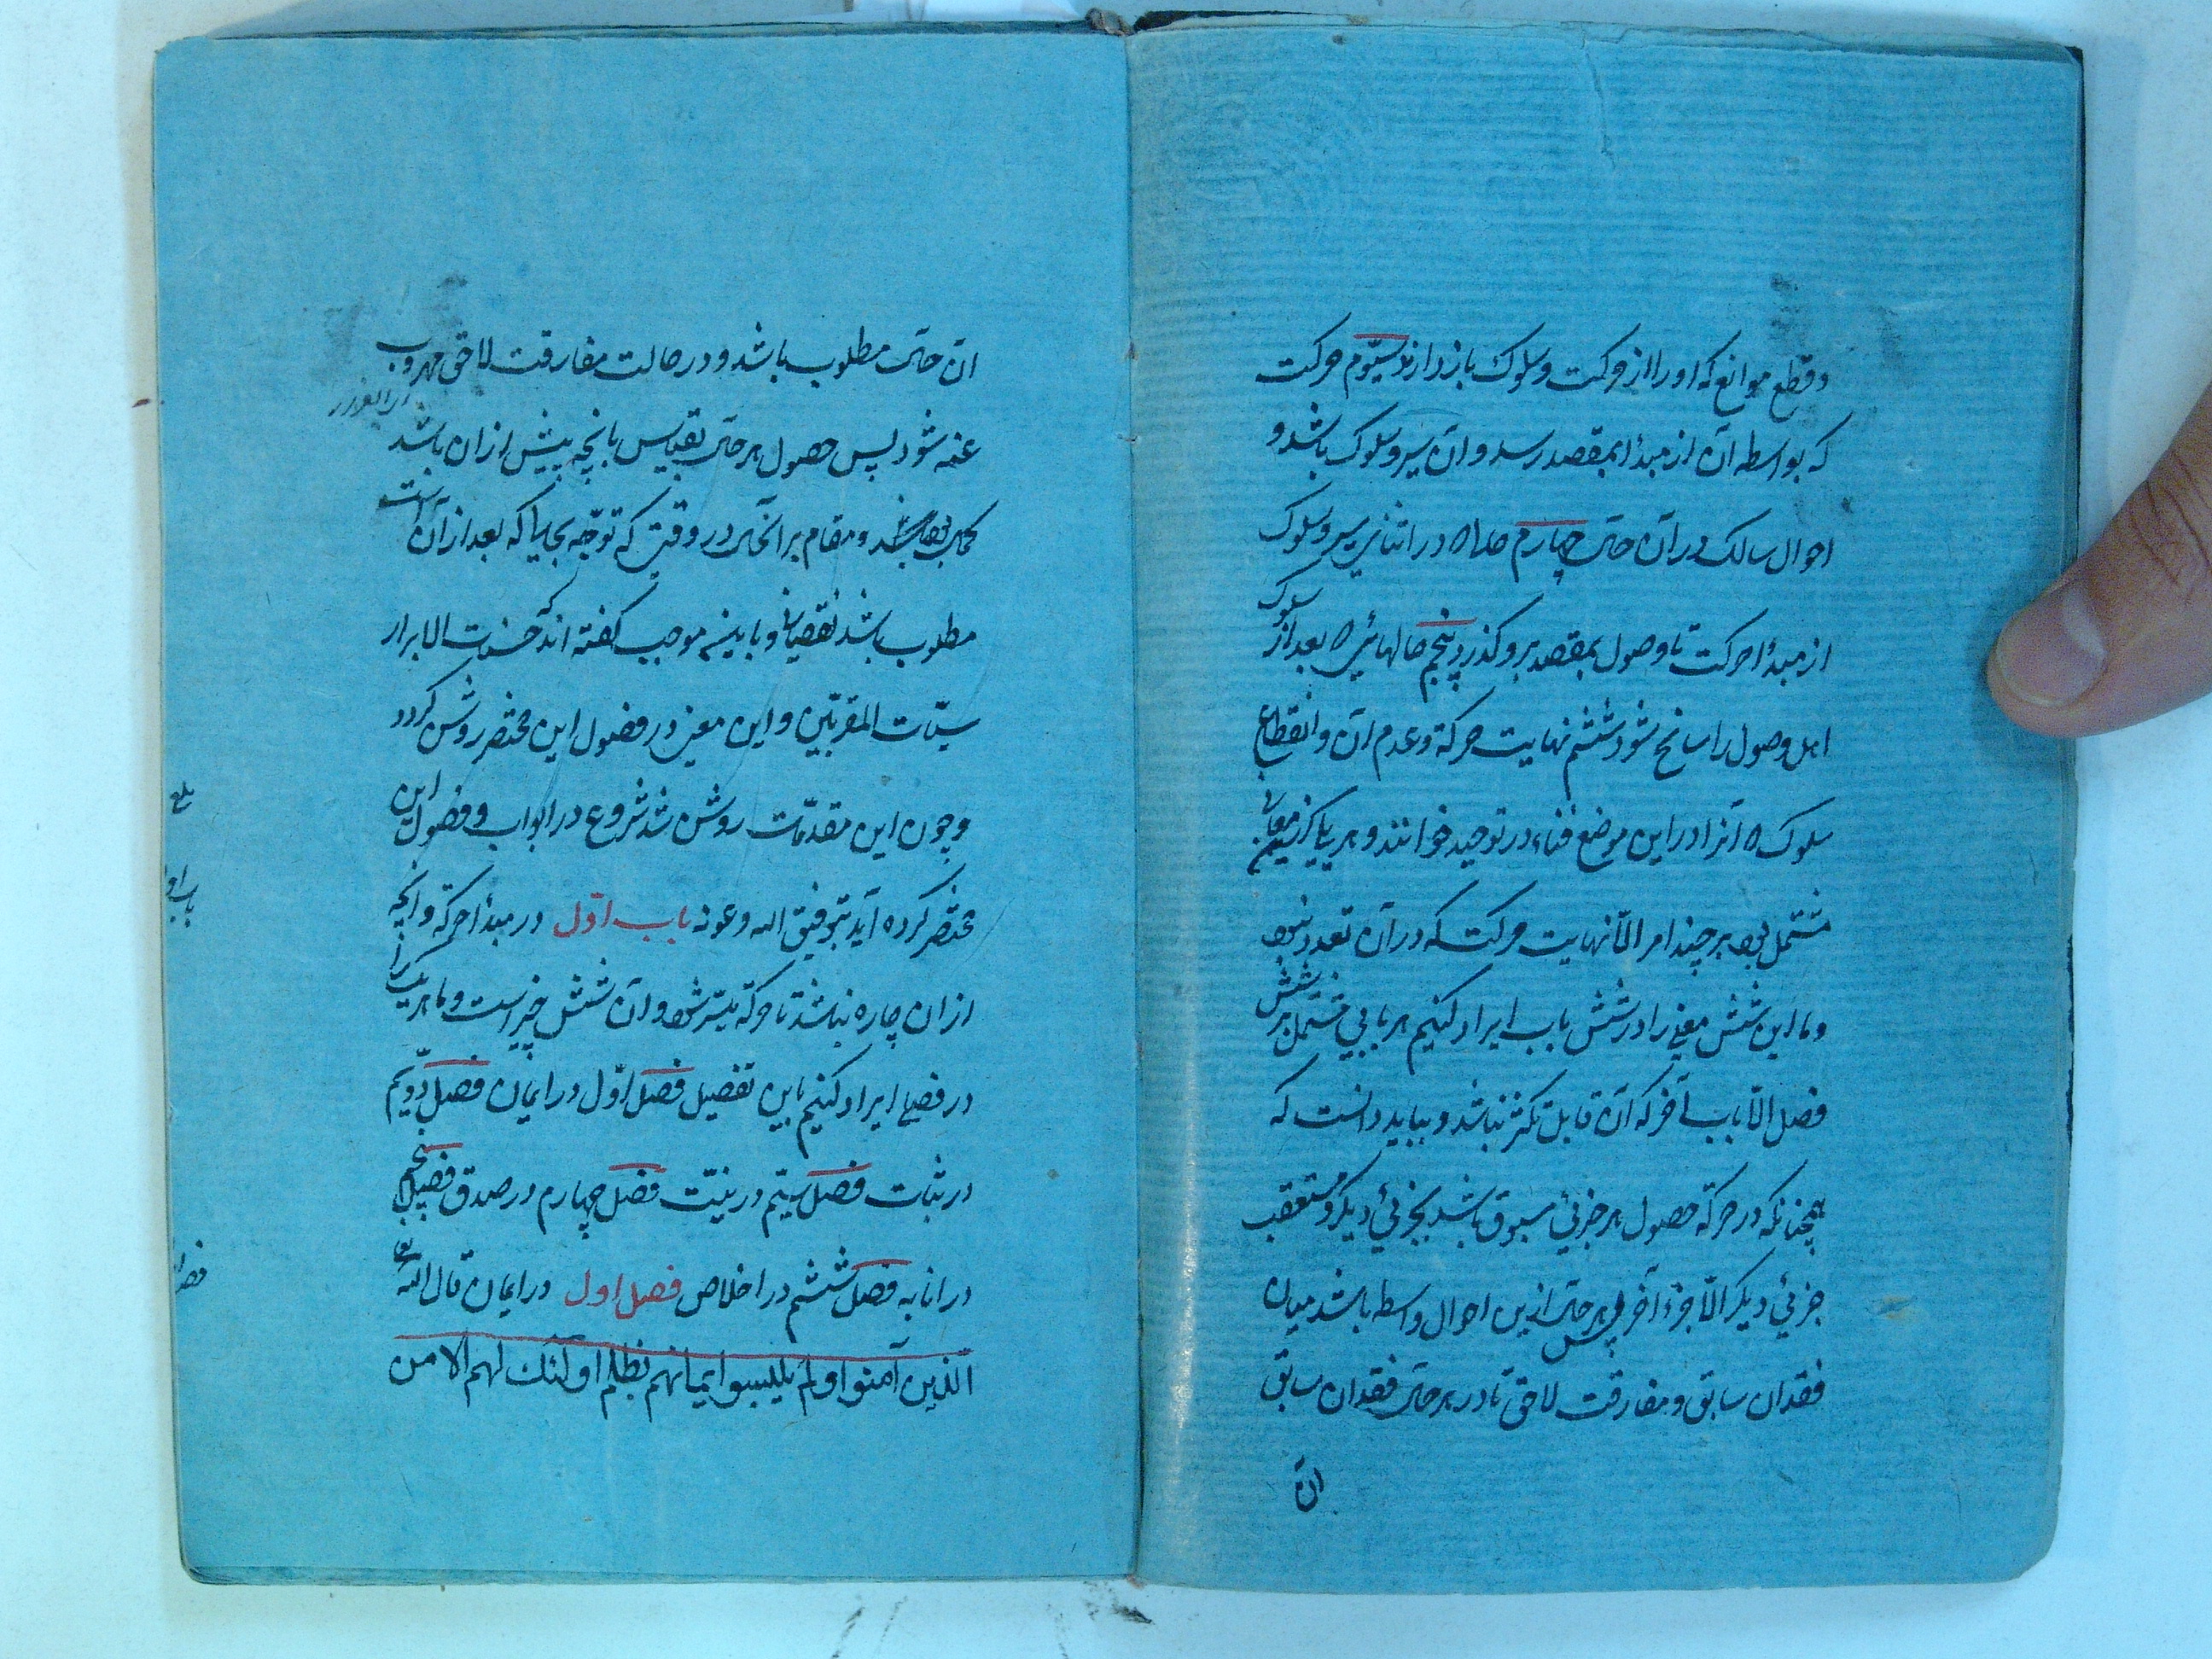 و قطع موانع که او را از حرکت و سلوک باز دارند سیّوم حرکت
که بواسطه آن از مبدأ بمقصد رسد و آن سیر و سلوک باشد و
احوال سالک در آن حال چهارم حالها که در اثنای سیر و سلوک
از مبدأ حرکت تا وصول بمقصد بر و گذرد پنجم حالهائی که بعد از سلوک
اهل وصول را سانح شود ششم نهایت حرکة و عدم آن و انقطاع
سلوک که آنرا در این موضع فناء در توحید خوانند و هر یک از این معانی
مشتمل بود بر چند امر الّا نهایت حرکت که در آن تعدد نبود
و ما این شش معنی را در شش باب ایراد کنیم هر بابی مشتمل بر شش
فصل الّا باب آخر که آن قابل تکثر نباشد و بباید دانست که
همچنانکه در حرکة حصول هر جزئی مسبوق باشد بجزئی دیگر و مستعقب
جزئی دیگر الّا جزء آخر پس هر حال ازین احوال واسطه باشد میان
فقدان سابق و مفارقت لاحق تا در هر حال فقدان سابق
آن
آن حال مطلوب باشد و در حالت مفارقت لاحق مهروب
عنه شود پس حصول هر حال بقیاس بآنچه پیش از آن باشد
کمال بود و مقام بر آنحال در وقتی که توجّه بحالیا که بعد از آنست
مطلوب باشد نقصان و باینه موجب گفته اند که حسنات الابرار
سیّئات المقرّبین و این معنی در فصول این مختصر روشن گردد
و چون این مقدّمات روشن شد شروع در ابواب و فصول این
مختصر کرده آید بتوفیق الله و عونه باب اوّل در مبدأ حرکة و آنچه
از آن چاره نباشد تا حرکة میسّر شود و آن شش چیز است و ما هر یک را
در فصلی ایراد کنیم باین تفصیل فصل اوّل در ایمان فصل دوّیم
در ثبات فصل سیّم در نیّت فصل چهارم در صدق فصل پنجم
در انابه فصل ششم در اخلاص فصل اول در ایمان قال الله تع
الّذین آمنوا و لم یلبسوا ایمانهم بظلم اولئک لهم الامن